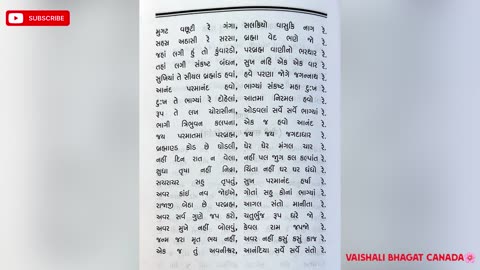 SUBSCRIBE
મુગટ વછૂટી રે ગંગા, સલકિયો વાસુકિ નાગ રે.
સહસ્ર અઠાસી રે સરસા, બ્રહ્મા વેદ ભણે જો રે.
જહાં લગી હું તો કુંવારડો, પરબ્રહ્મ વાણીનો ભરથાર રે.
તહાં લગી સંકષ્ટ બંધન, સુખ નહિ એક એક વાર રે.
સુખિયા તે સીયલ બ્રહ્માંડ હવાં, હવે પરણા જોગે જગન્નાથ રે.
આનંદ પરમાનંદ હવો, ભાગ્યાં સંકષ્ટ મહા દુઃખ રે.
દુઃખ તે ભાગ્યાં રે દોહેલાં, આતમા નિરમલ હવો રે.
રૂપ તે લખ ચોરાસીના, ઓદવલાં સર્વે સર્વે ભાગ્યાં રે.
ભાગી ત્રિભુવન કલપના, એક જ હવો આનંદ રે.
જય પરમાતમા પરબ્રહ્મ, જય જય જગદાધાર રે.
બ્રહ્માણ્ડ કોડ છે ધોડલી, ઘેર ઘેર મંગલ ચાર રે.
નહીં દિન રાત ન વેલા, નહીં પલ જુગ કલ કલ્પાંત રે.
સુધા તૃષા નહીં નિંદ્રા, ચિંતા નહીં ઘર ઘર ધંધો રે.
સચરાચર સહુ તૃપતું, સુખ પરમાનંદ હર્ષા રે.
અવર કાંઈ નવ જોઈએ, ગોતાં સહુ કોનાં ભાગ્યાં રે.
રાજાજી બેઠા છે પરબ્રહ્મ, આગલ સંતો માનીતા રે.
અવર સર્વ ગુણે જપ કરો, ચતુર્ભુજ રૂપ ધરે જો રે.
અવર મુખે નહીં બોલવું, કેવલ રામ જપજો રે.
જન્મ જરા મૃત ભય નહીં, અવર નહીં કશું કશું કાજ રે.
એક જ તું અવનીકર, આનંદિયા સર્વે સર્વે સંતો રે.
VAISHALI BHAGAT CANADA